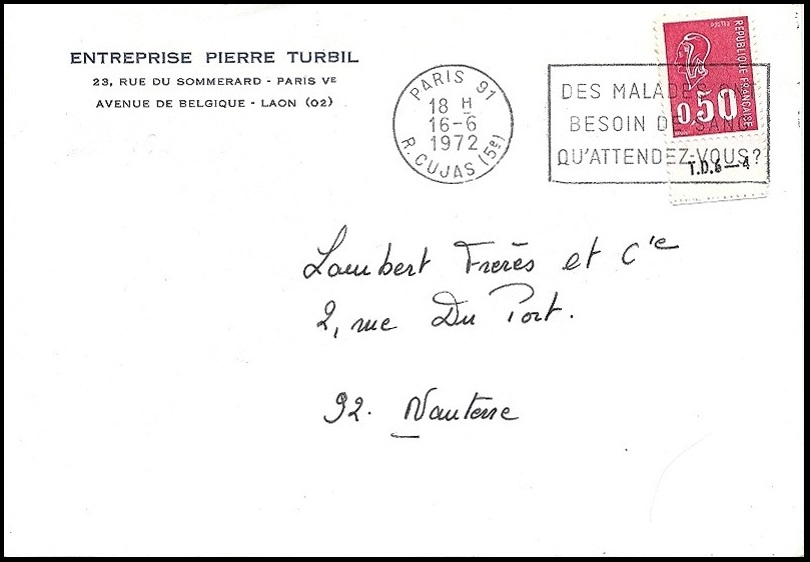 ENTREPRISE PIERRE TURBIL
23, RUE DU SOMMERARD - PARIS Vᴱ
AVENUE DE BELGIQUE - LAON (02)
PARIS 91
18 H
16-6
1972
R. CUJAS (5e)
DES MALADES ONT
BESOIN DE SANG
QU'ATTENDEZ-VOUS?
REPUBLIQUE FRANÇAISE
0,50
T.D.6-4
Lambert Frères et Cie
2, rue Du Port.
92. Nanterre